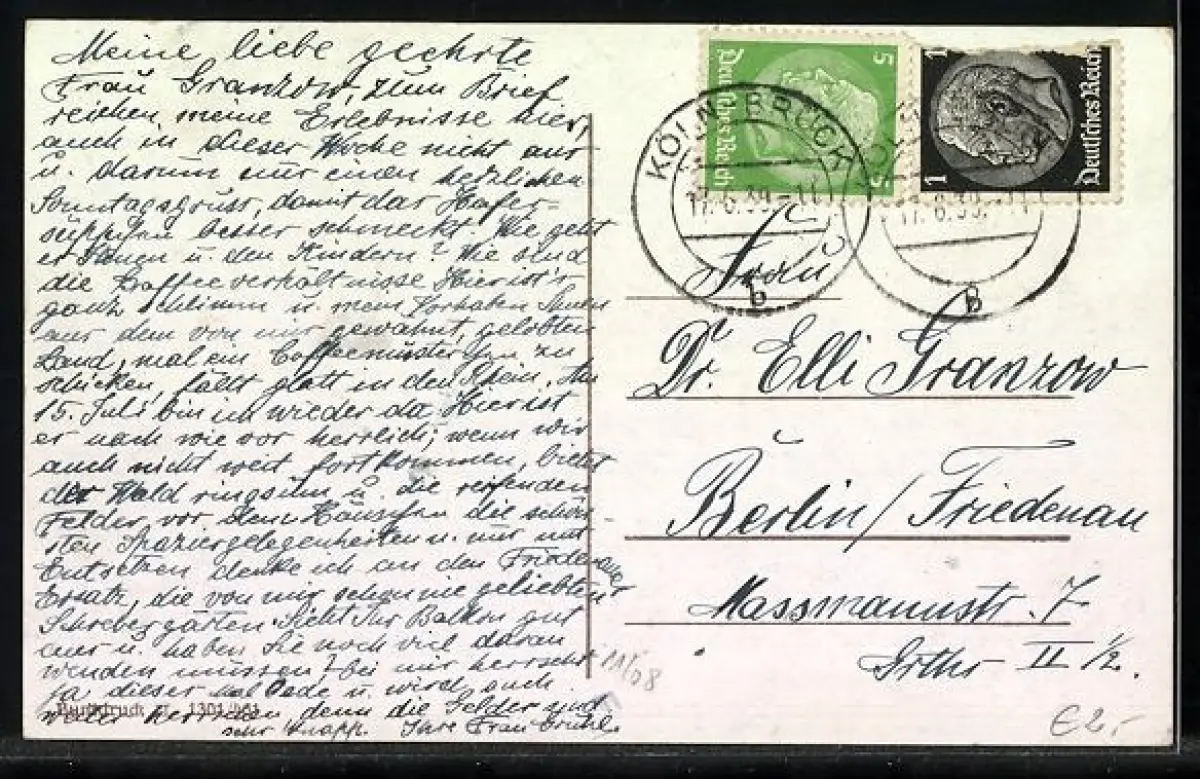 Meine liebe geehrte
Frau Granzow, zum Brief
reichen meine Erlebnisse hier,
auch in dieser Woche nicht aus
u. darum nur einen herzlichen
Sonntagsgruss, damit das Hafer-
süppchen besser schmeckt. Wie geht
es Ihnen u. den Kindern? Wie sind
die Kaffeeverhältnisse Hier ist's
ganz schlimm u. mein Vorhaben Ihnen
aus dem von mir gewähnt, gelobten
Land, mal ein Coffeemüsterchen zu
schicken, fällt glatt in den Rhein. Am
15. Juli bin ich wieder da Hier ist
es nach wie vor herrlich; wenn wir
auch nicht weit fortkommen, bietet
der Wald ringsum u. die reifenden
Felder vor dem Häuschen die schön-
sten Spaziergelegenheiten u. nur mit
Entsetzen denke ich an den Friedenauer
Ersatz, die von mir schon nie geliebten
Schrebergärten Sieht Ihr Balkon gut
aus u. haben Sie noch viel daran
wenden müssen? bei mir herrscht
ja dieser mal Oede u. wird auch
weiter herrschen denn die Gelder sind
sehr knapp. Ihre Frau
1301/
5 Deutsches Reich 5
1 Deutsches Reich 1
KÖLN-BRÜCK
17.6.39.-11
b
17.6.39.-11
Frau
Dr. Elli Granzow
Berlin/Friedenau
Massmannstr. 7
Grths II 1/2.
€2,-